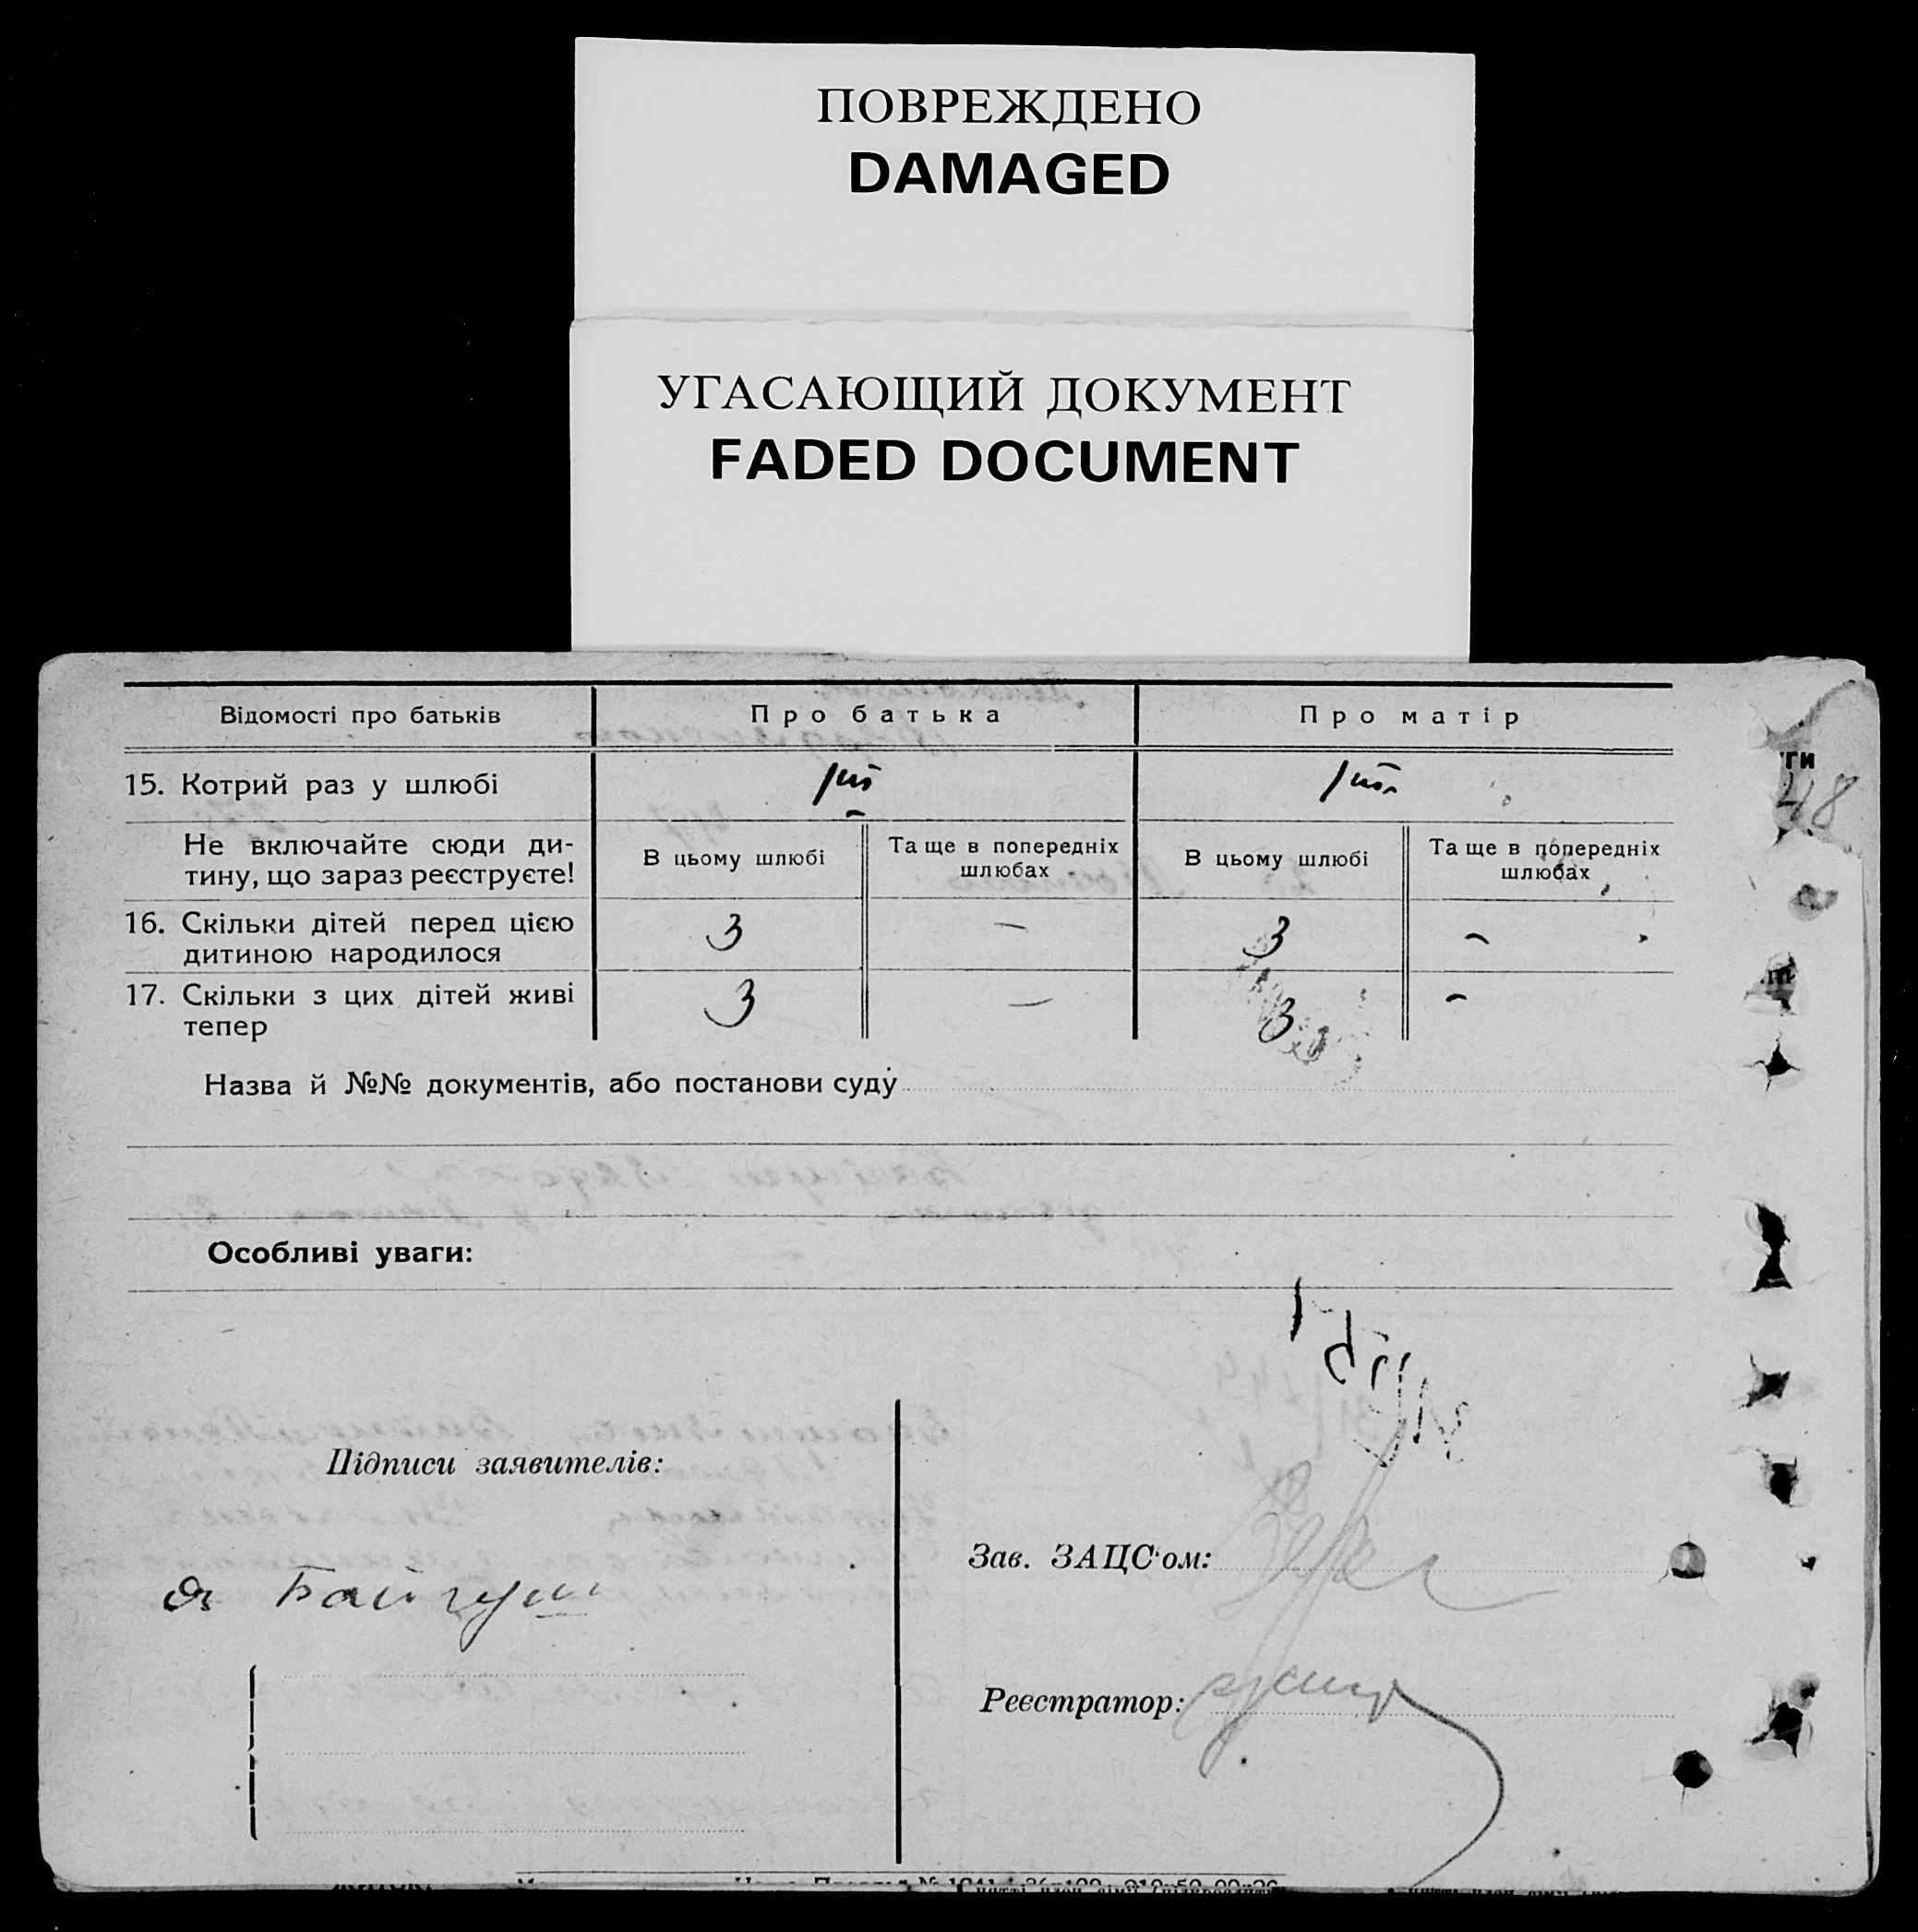 ПОВРЕЖДЕНО
DAMAGED
УГАСАЮЩИЙ ДОКУМЕНТ
FADED DOCUMENT
Відомості про батьків Про батька Про матір
15. Котрий раз у шлюбі 1ий 1ий
Не включайте сюди ди-
тину, що зараз реєструєте!
В цьому шлюбі
Та ще в попередніх
шлюбах
В цьому шлюбі
Та ще в попередніх
шлюбах
16. Скільки дітей перед цією
дитиною народилося
3 — 3 —
17. Скільки з цих дітей живі
тепер
3 — 3 —
Назва й №№ документів, або постанови суду
Особливі уваги:
Підписи заявителів:
Байгуш
Зав. ЗАЦС'ом:
Реєстратор:
ги
48